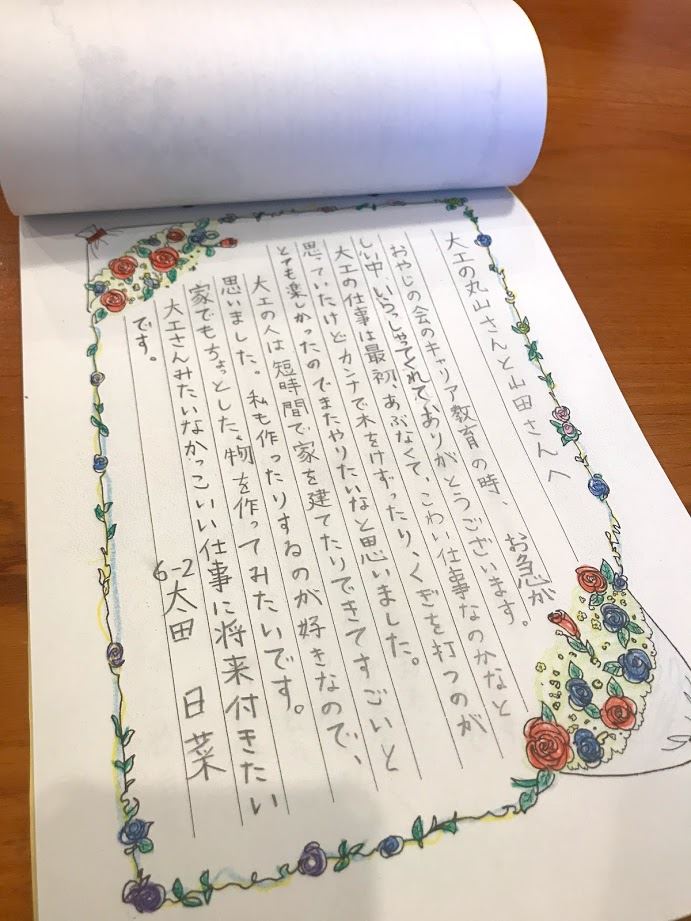 大工の丸山さんと山田さんへ
おやじの会のキャリア教育の時、お急が
しい中、いらっしゃてくれてありがとうございます。
大工の仕事は最初、あぶなくて、こわい仕事なのかなと
思っていたけどカンナで木をけずったり、くぎを打つのが
とても楽しかったのでまたやりたいなと思いました。
大工の人は短時間で家を建てたりできてすごいと
思いました。私も作ったりするのが好きなので、
家でもちょっとした物を作ってみたいです。
大工さんみたいなかっこいい仕事に将来付きたい
です。
6-2 太田 日菜